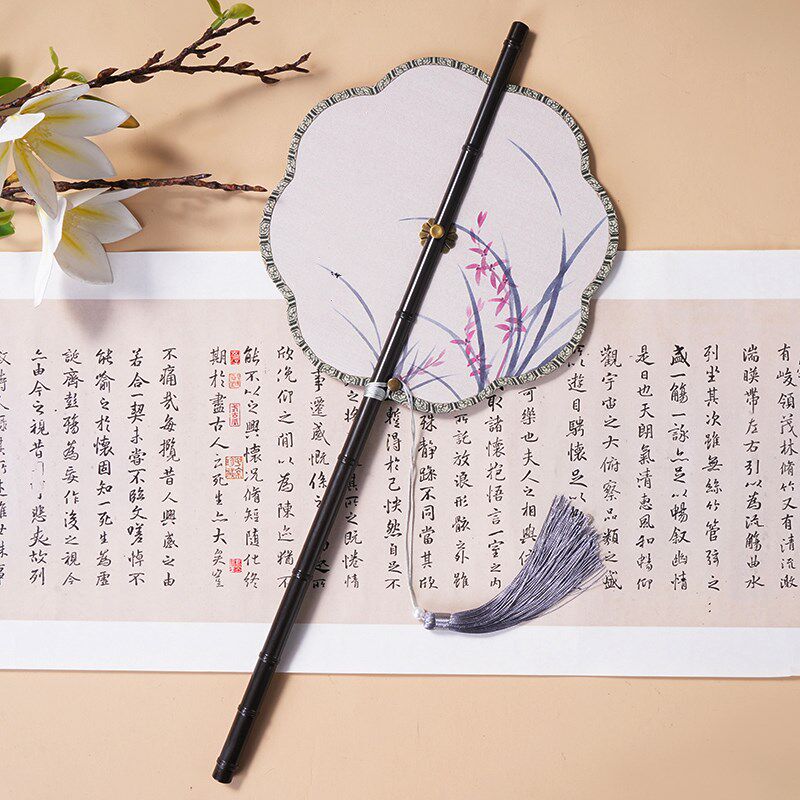 有峻領茂林脩竹又有清流激
湍暎帶左右引以為流觴曲水
列坐其次雖無絲竹管弦之
盛一觴一詠亦足以暢敘幽情
是日也天朗氣清惠風和暢仰
觀宇宙之大俯察品類之盛
以遊目騁懷足以
可樂也夫人之相與
諸懷抱悟言一室之內
託放浪形骸之外雖
殊靜躁不同當其欣
暫得於己快然自足不
其所之既惓情
事遷感慨係之
欣俛仰之間以為陳迹猶不
能不以之興懷況脩短隨化終
期於盡古人云死生亦大矣豈
不痛哉每攬昔人興感之由
若合一契未嘗不臨文嗟悼不
能喻之於懷固知一死生為虛
誕齊彭殤為妄作後之視今
亦由今之視昔悲夫故列